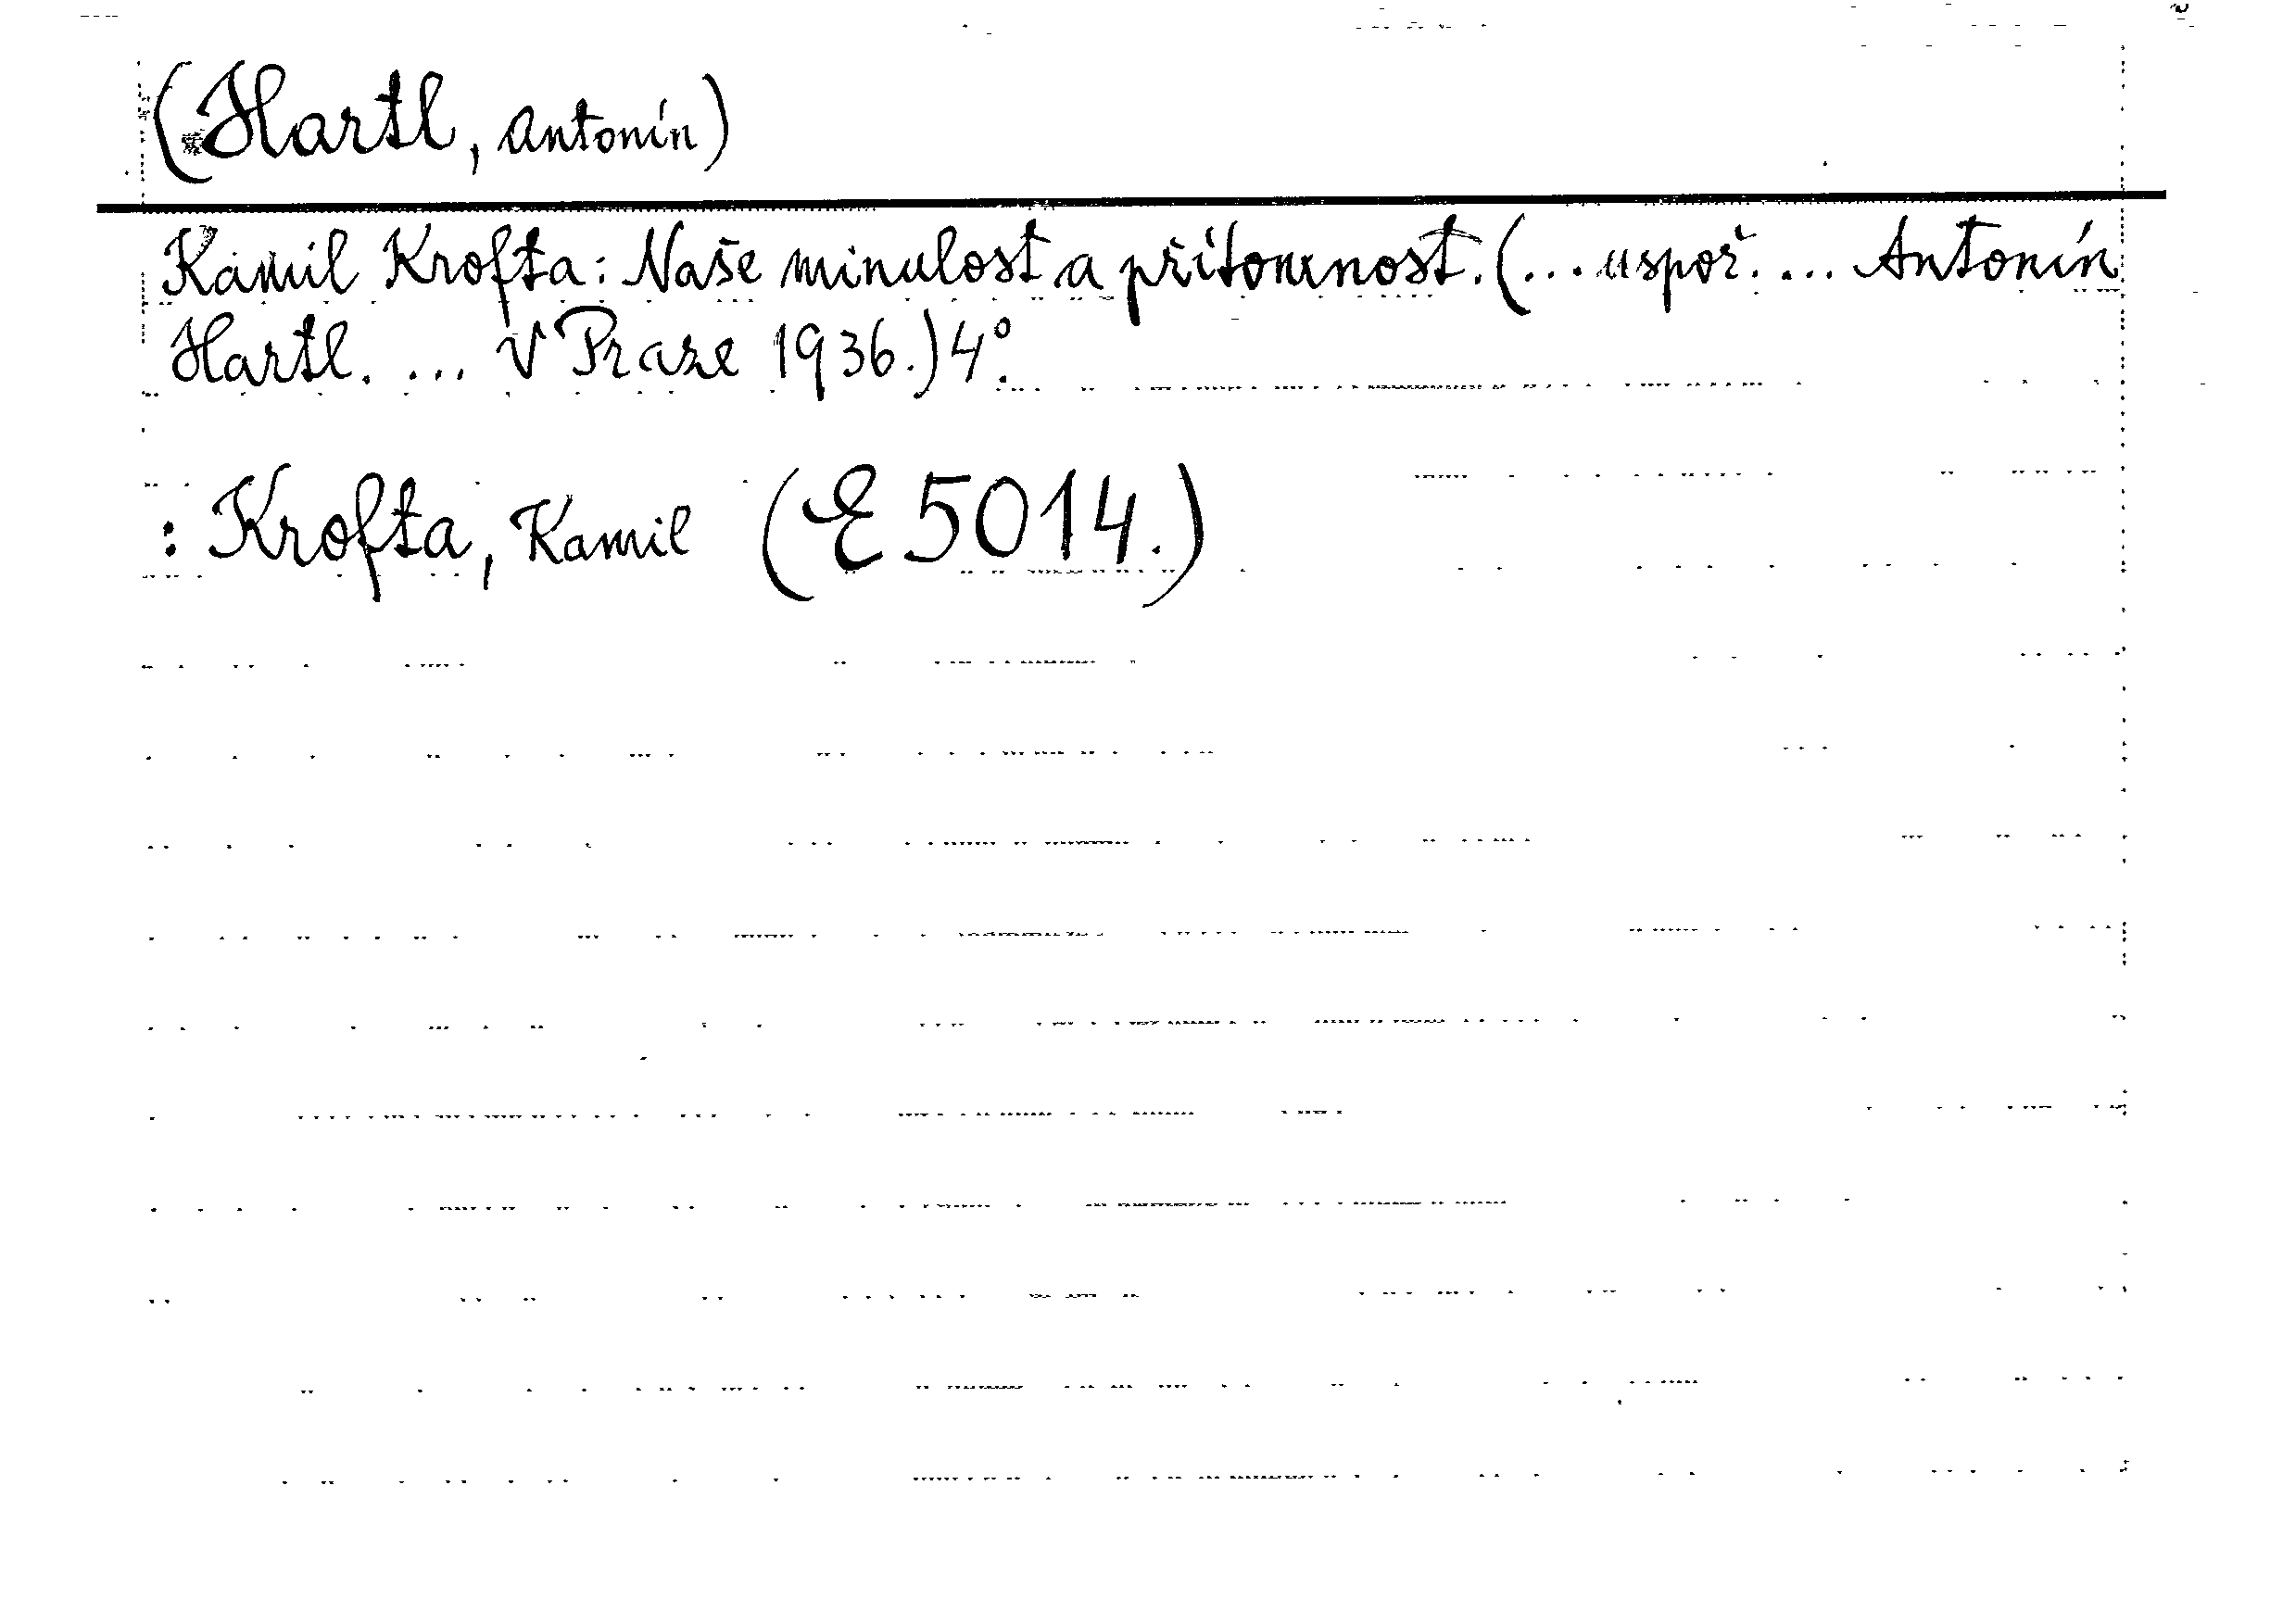 (Hartl, Antonín)
Kamil Krofta: Naše minulost a přítomnost. (... uspoř. ... Antonín
Hartl. ... V Praze 1936.) 4°.
: Krofta, Kamil (E 5014.)